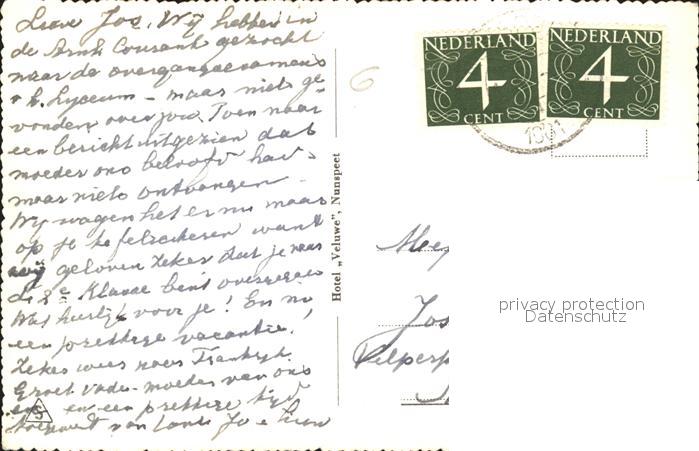 Lieve Jos, Wij hebben in
de Arnh Courant gezocht
naar de overgangsexamens
v h. Lyceum - maar niets ge-
vonden over jou. Toen naar
een bericht uitgezien dat
moeder ons beloofd had -
maar niets ontvangen -
Wij wagen het er nu maar
op je te feliciteren want
wij geloven zeker dat je naar
de 2e Klasse bent overgegaan
Wat heerlijk voor je! En nu
een prettige vacantie!
Zeker weer naar Frankrijk.
Groet vader - moeder van ons
en een prettige tijd
van tante Jo
Hotel „Veluwe”, Nunspeet
6
NEDERLAND
4
CENT
NEDERLAND
4
CENT
Mej
Jos
Velperp
privacy protection
Datenschutz
S